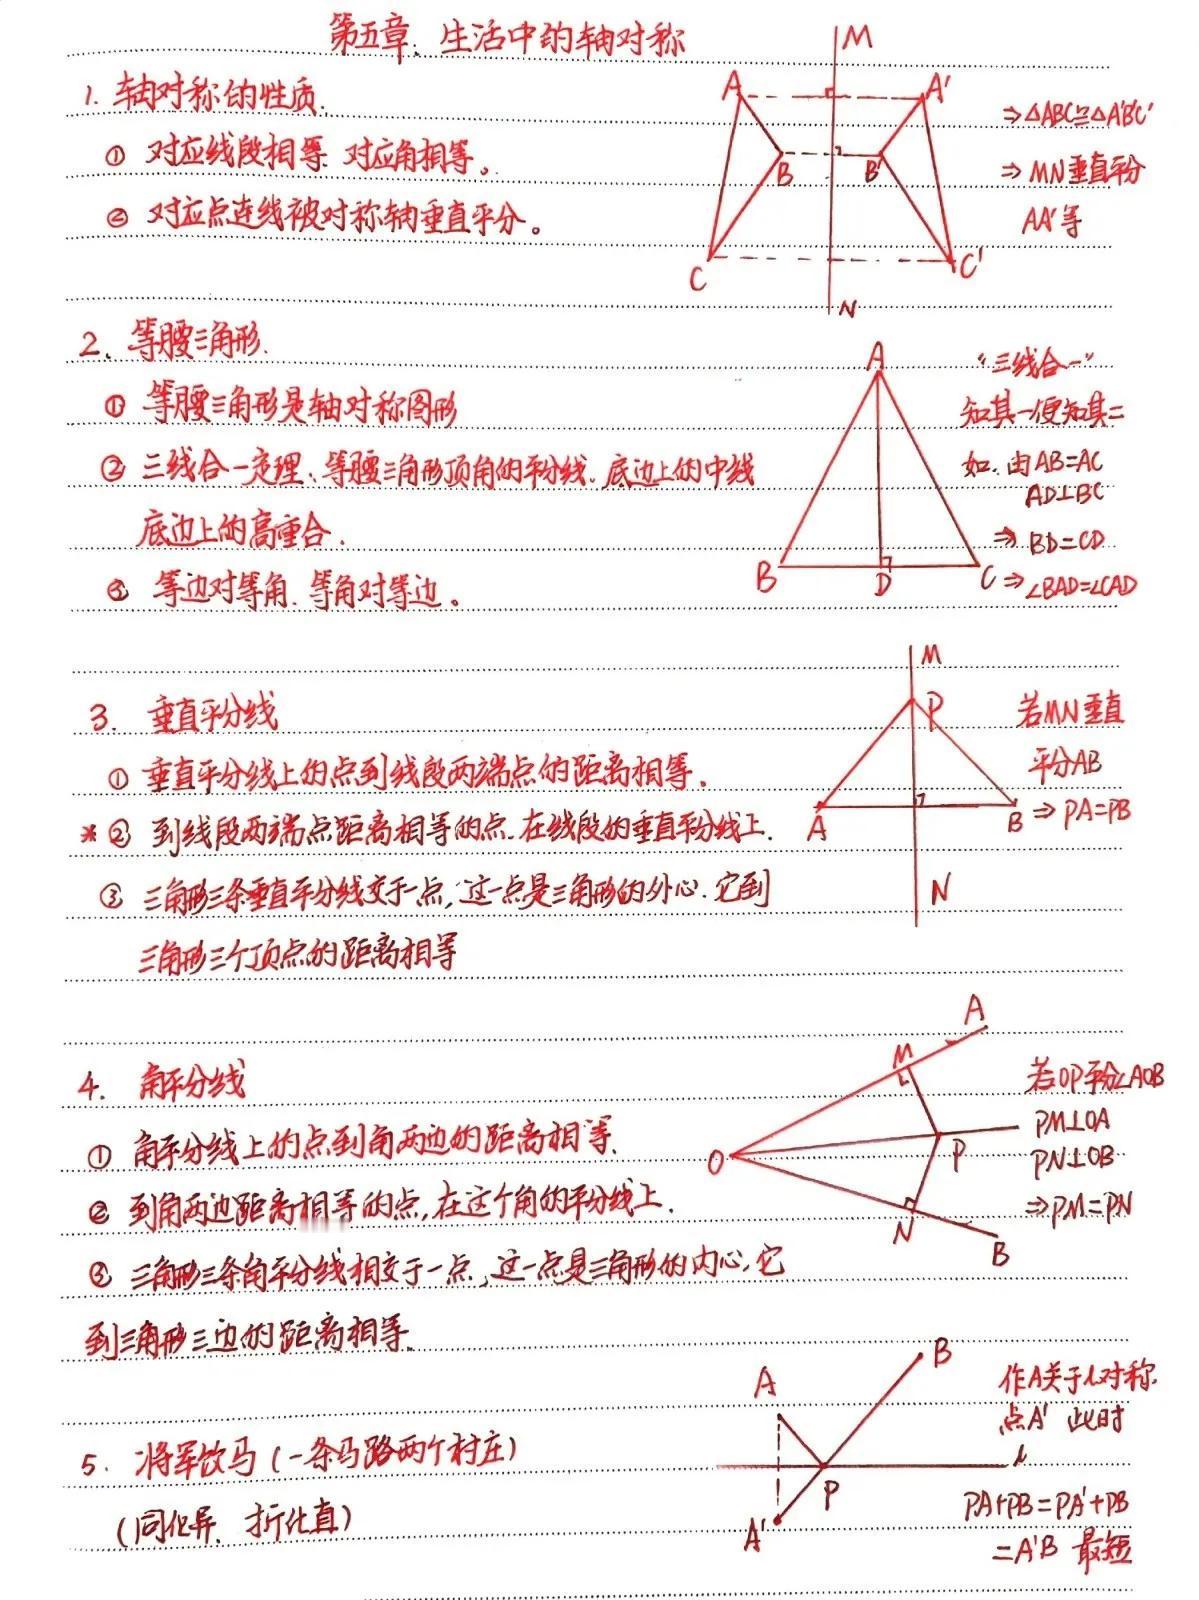 第五章、生活中的轴对称
1. 轴对称的性质.
① 对应线段相等 对应角相等。
② 对应点连线被对称轴垂直平分。
M
A
A'
B
B'
C
C'
N
⇒△ABC≌△A'B'C'
⇒MN垂直平分
AA'等
2、等腰三角形.
① 等腰三角形是轴对称图形
② 三线合一定理、等腰三角形顶角的平分线、底边上的中线
底边上的高重合.
③ 等边对等角、等角对等边。
A
B
D
C
“三线合一”
知其一便知其二
如、由AB=AC
AD⊥BC
⇒ BD=CD
⇒ ∠BAD=∠CAD
3. 垂直平分线
① 垂直平分线上的点到线段两端点的距离相等.
*② 到线段两端点距离相等的点.在线段的垂直平分线上.
③ 三角形三条垂直平分线交于一点,这一点是三角形的外心.它到
三角形三个顶点的距离相等
M
P
A
B
N
若MN垂直
平分AB
⇒PA=PB
4. 角平分线
① 角平分线上的点到角两边的距离相等.
② 到角两边距离相等的点,在这个角的平分线上.
③ 三角形三条角平分线相交于一点,这一点是三角形的内心,它
到三角形三边的距离相等.
A
M
O
P
N
B
若OP平分∠AOB
PM⊥OA
PN⊥OB
⇒PM=PN
5. 将军饮马(一条马路两个村庄)
(同化异、折化直)
A
B
l
P
A'
作A关于l对称
点A' 此时
PA+PB=PA'+PB
=A'B 最短